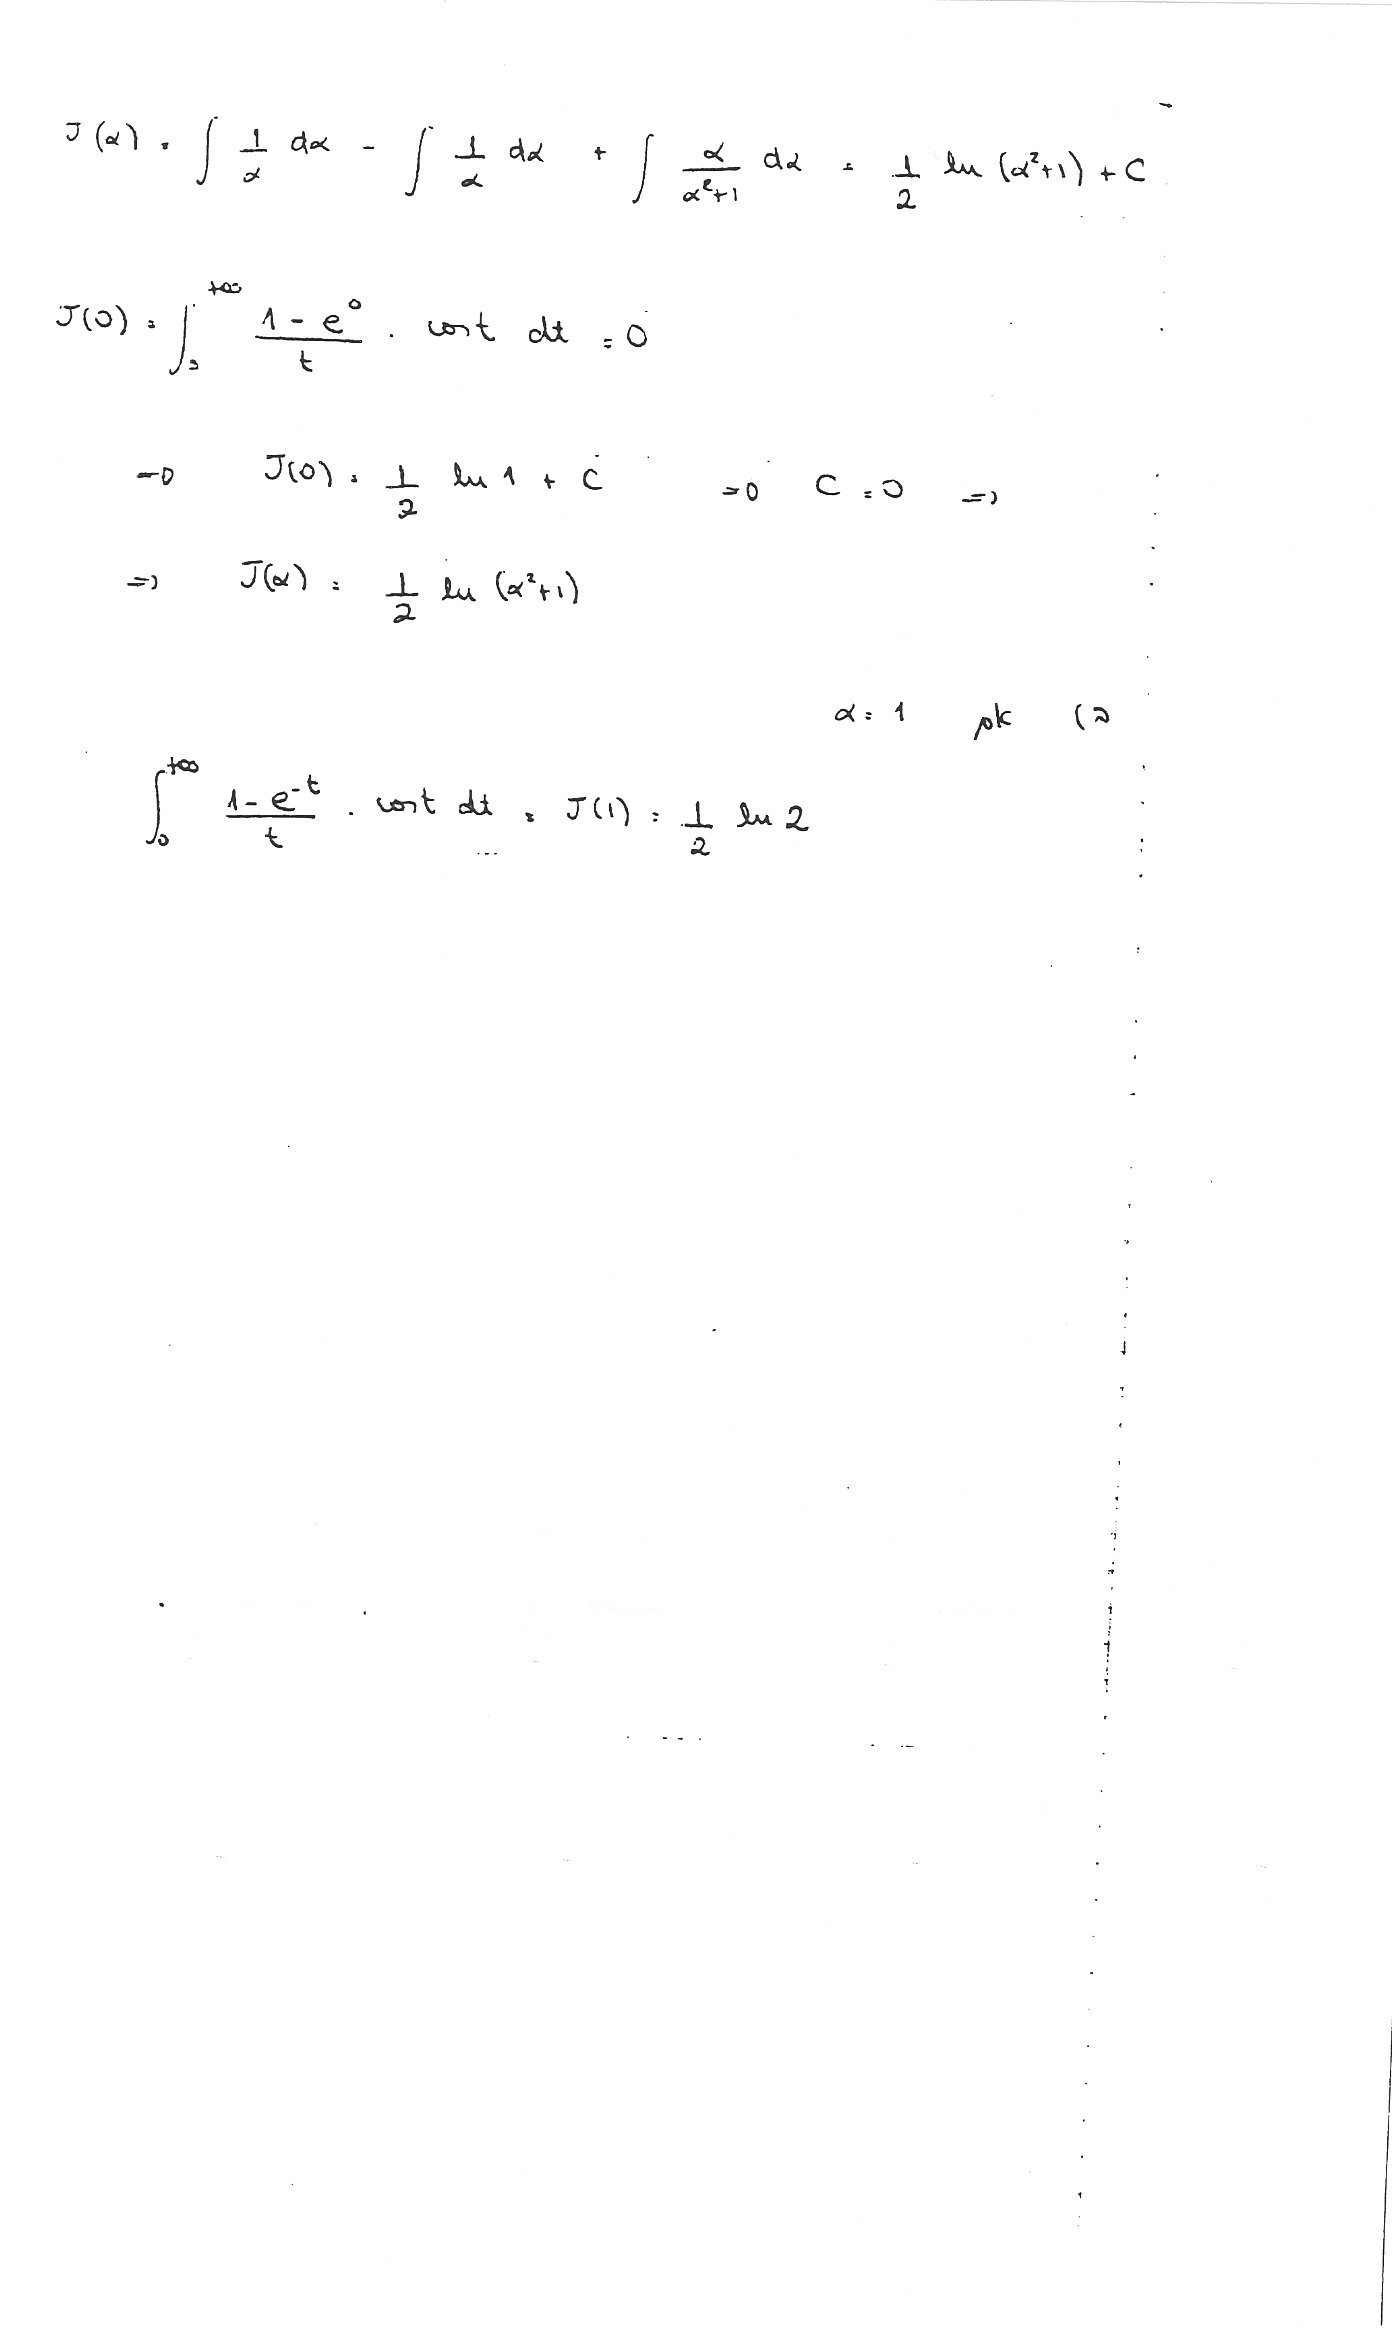 J(α) = ∫ 1/α dα - ∫ 1/α dα + ∫ α/(α²+1) dα = 1/2 ln (α²+1) + C
J(0) = ∫₀^{+∞} (1-e⁰)/t · cost dt = 0
⇒ J(0) = 1/2 ln 1 + C ⇒ C = 0 ⇒
⇒ J(α) = 1/2 ln (α²+1)
α = 1
∫₀^{+∞} (1-e^{-t})/t · cost dt = J(1) = 1/2 ln 2